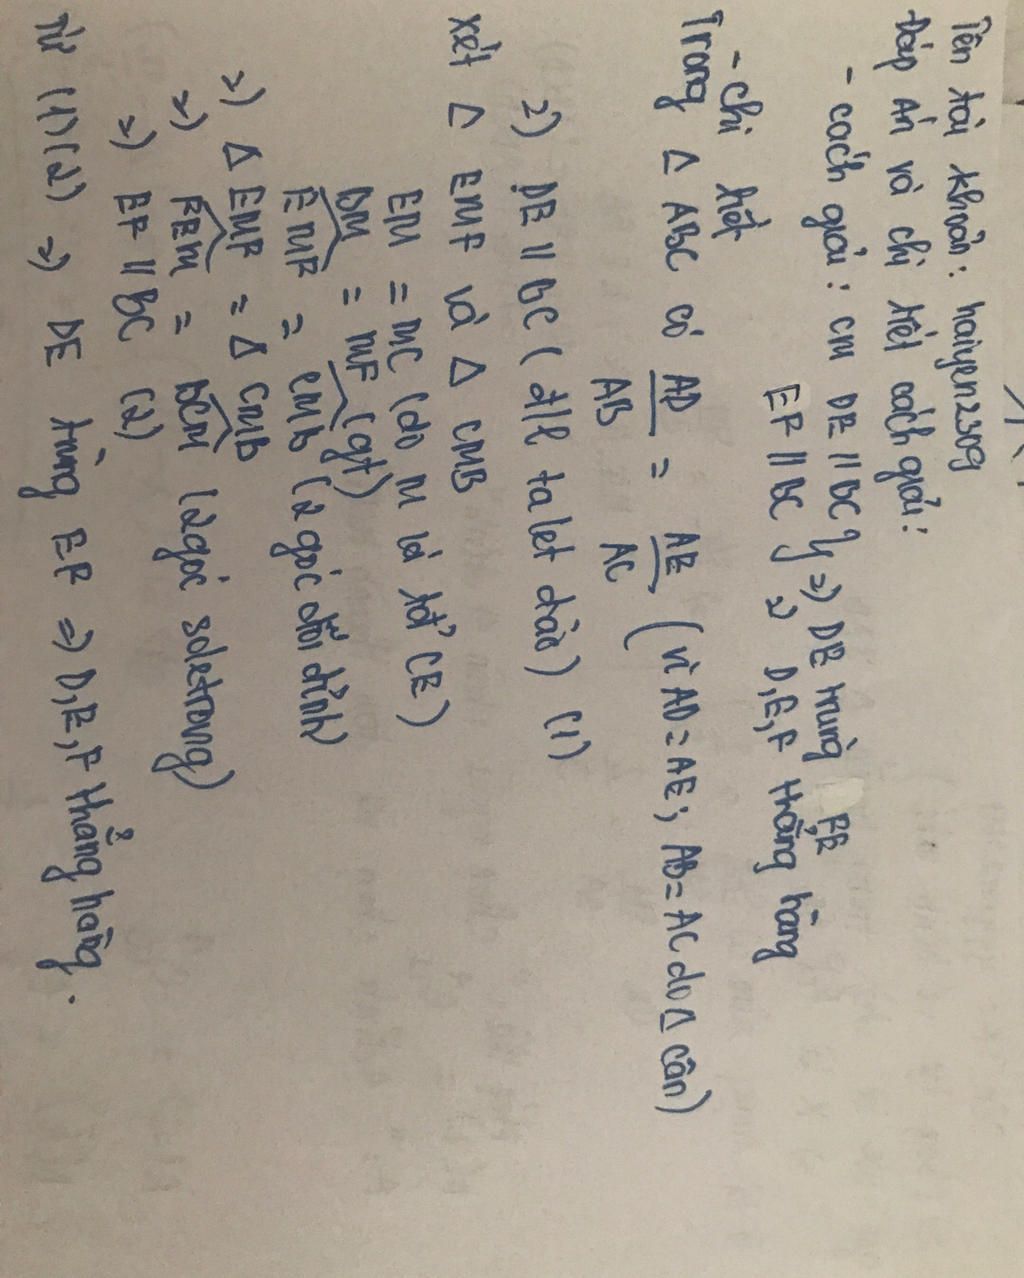 Tên tài khoản: haiyen2309
Đáp án và chi tiết cách giải:
- cách giải: cm DE // BC } => DE trùng FE
EF // BC } => D, E, F thẳng hàng
- chi tiết
Trong Δ ABC có AD/AB = AE/AC (vì AD = AE; AB = AC do Δ cân)
=) DE // BC (đ/l talet đảo) (1)
xét Δ EMF và Δ CMB
EM = MC (do M là tđ CE)
BM = MF (gt)
EMF = CMB (2 góc đối đỉnh)
=) Δ EMF = Δ CMB
=) FEM = BCM (2 góc soletrong)
=) EF // BC (2)
Từ (1)(2) =) DE trùng EF => D, E, F thẳng hàng.